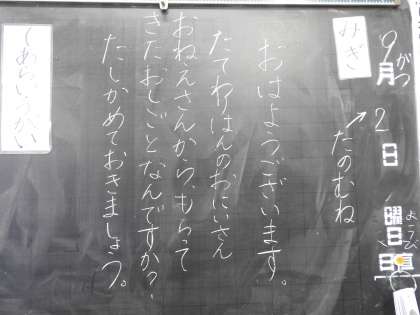 がつ
9月2日
ようび
曜日
日直
みぎ
たのむね
おはようございます。
たてわりはんのおにいさん
おねえさんから、もらって
きたおしごとなんですか?
たしかめておきましょう。
てあらいうがい